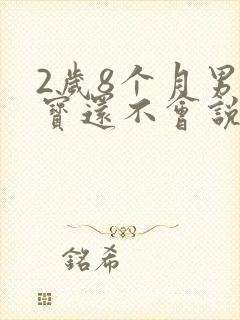 2歲8个月男
寶還不會說
銘希